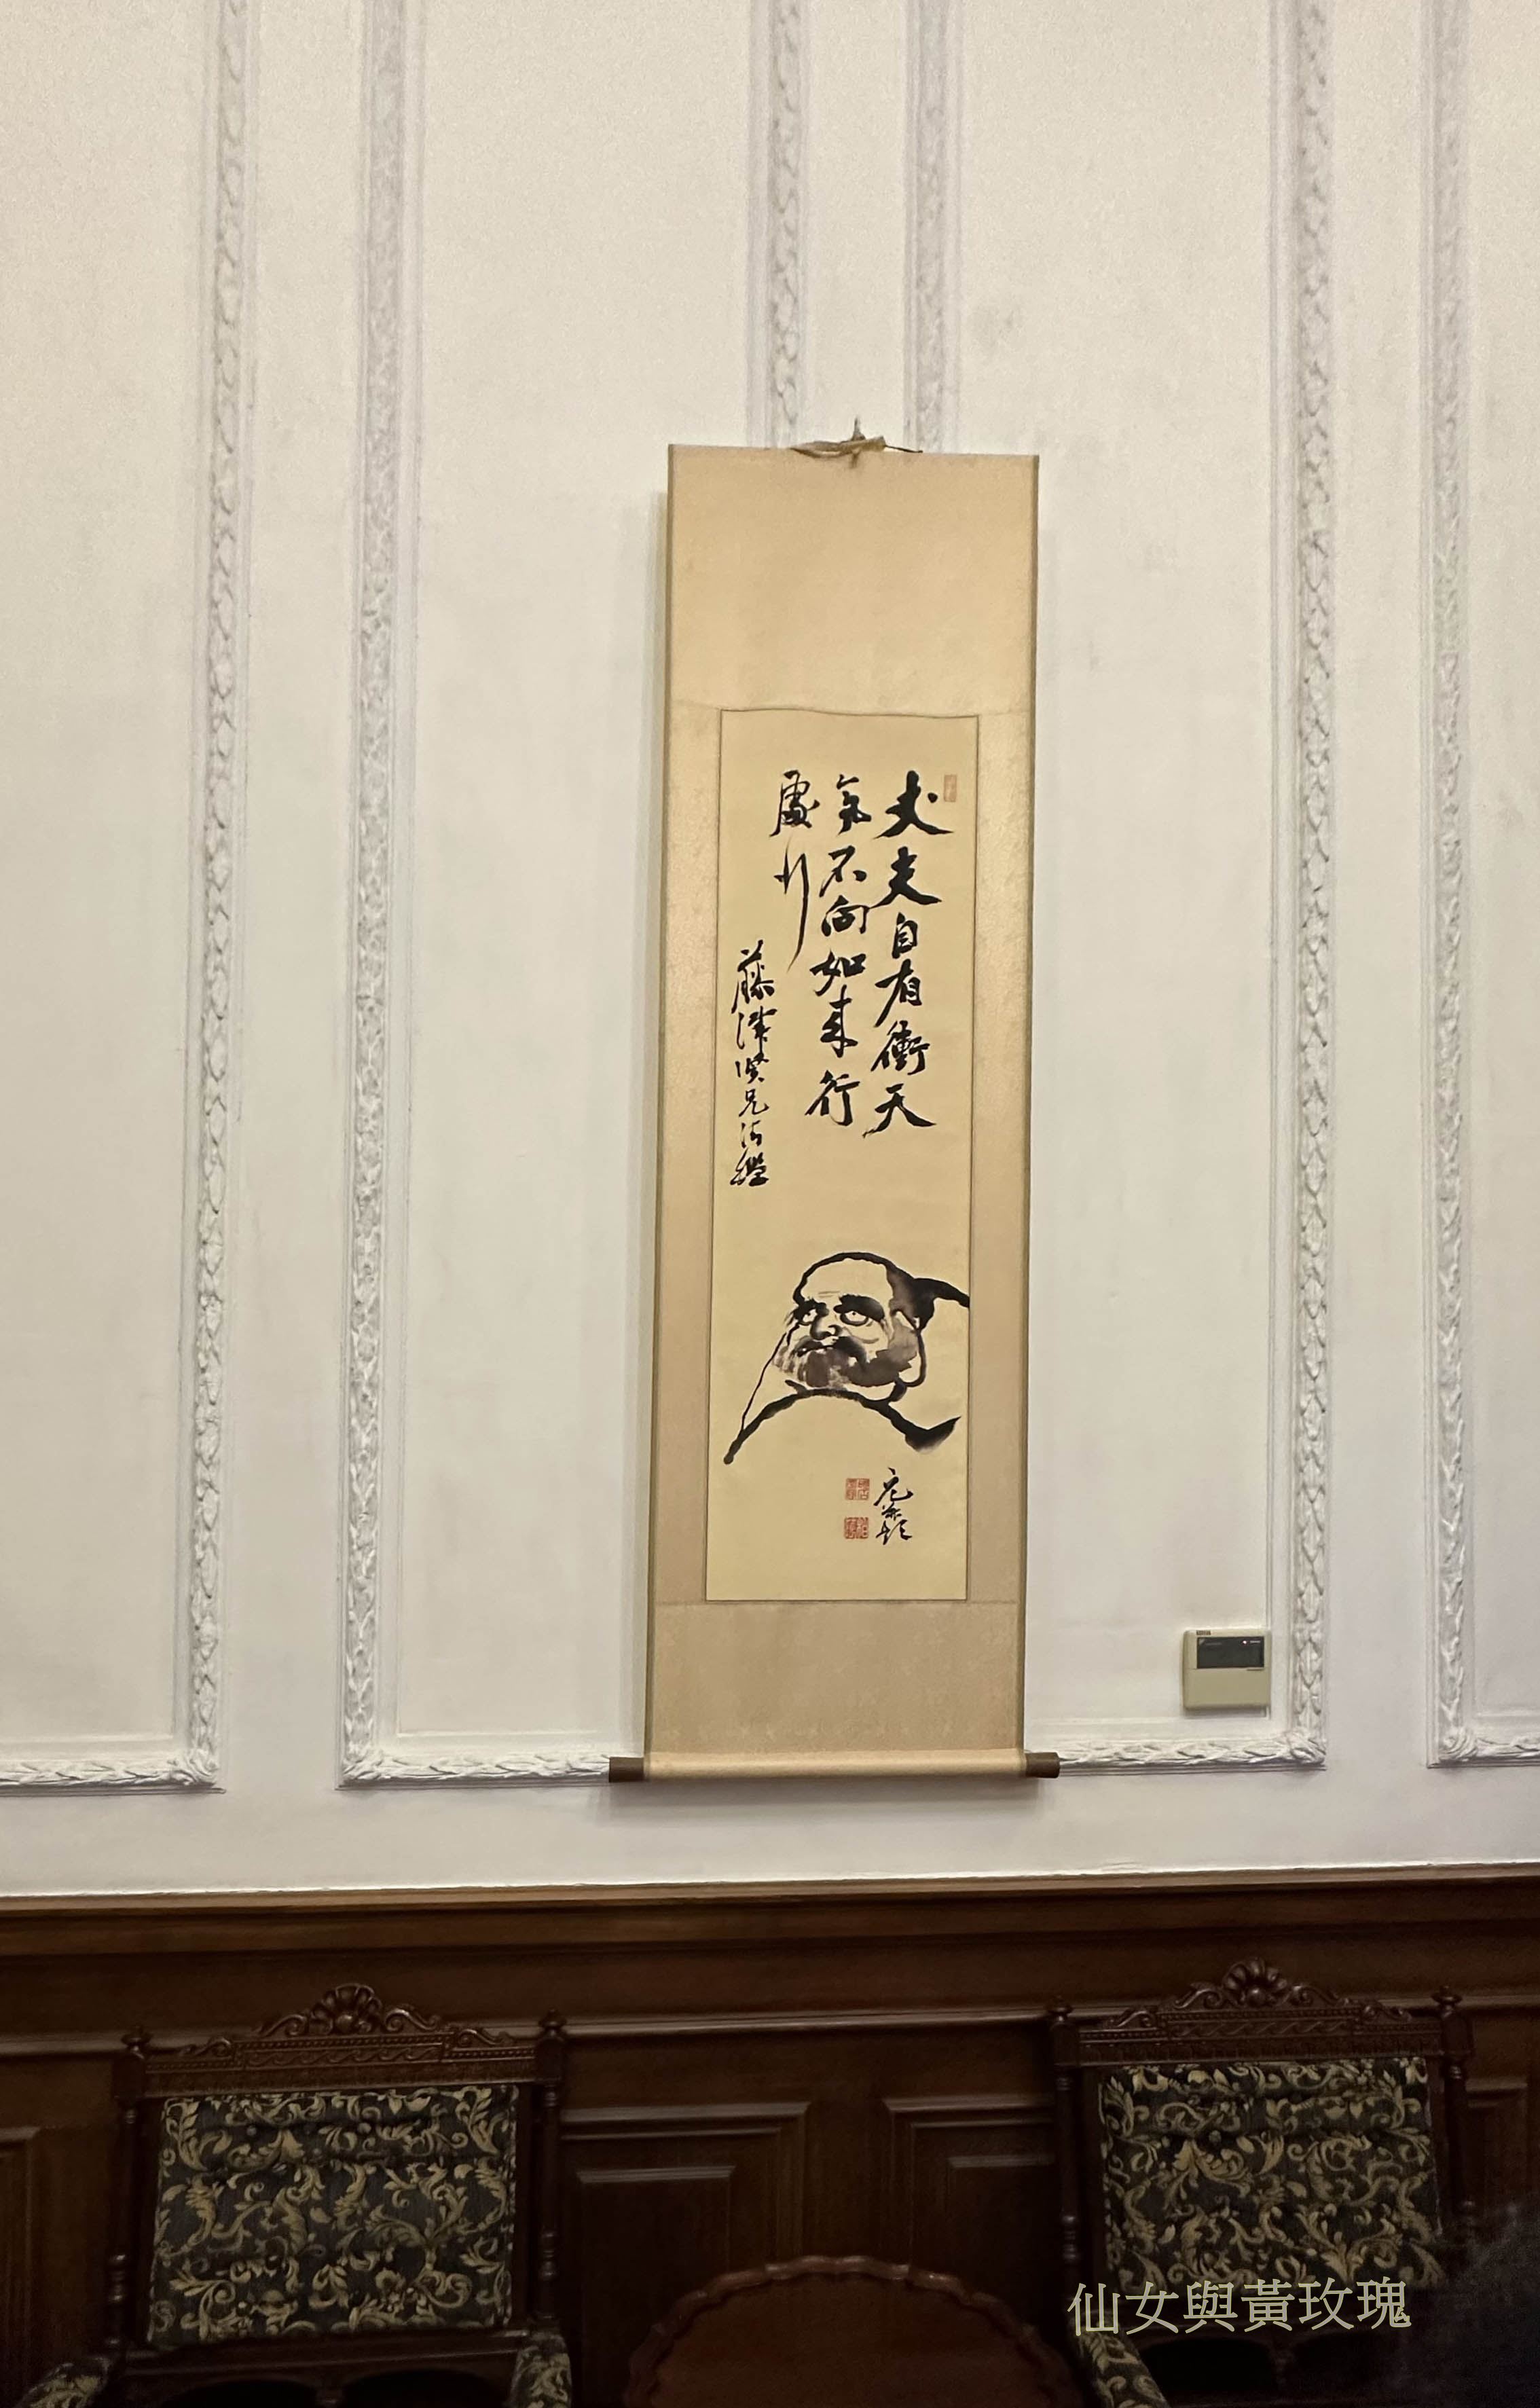 丈夫自有衝天
氣不向如來行
處行
藤澤賢兄清鑑
仙女與黃玫瑰